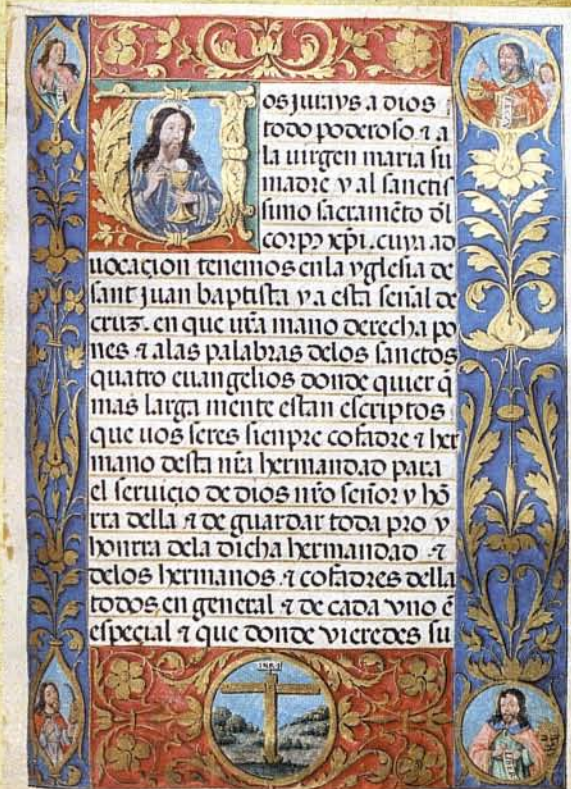 Vos jurays a dios
todo poderoso. ⁊ a
la uirgen maria su
madre y al sanctis
simo sacramẽto ðl
corpꝰ xp̃i. cuya ad
uocaçion tenemos enla yglesia de
sant juan baptista y a esta señal de
cruz. en que ũra mano derecha po
nes ⁊ alas palabras delos sanctos
quatro euangelios donde quier q̃
mas larga mente estan escriptos
que uos seres sienpre cofadre ⁊ her
mano desta nr̃a hermandad para
el seruiçio de dios nr̃o señor y hõ
rra della ⁊ de guardar toda pro y
honrra dela dicha hermandad ⁊
delos hermanos ⁊ cofadres della
todos en general ⁊ de cada vno ẽ
espeçial ⁊ que donde vieredes su